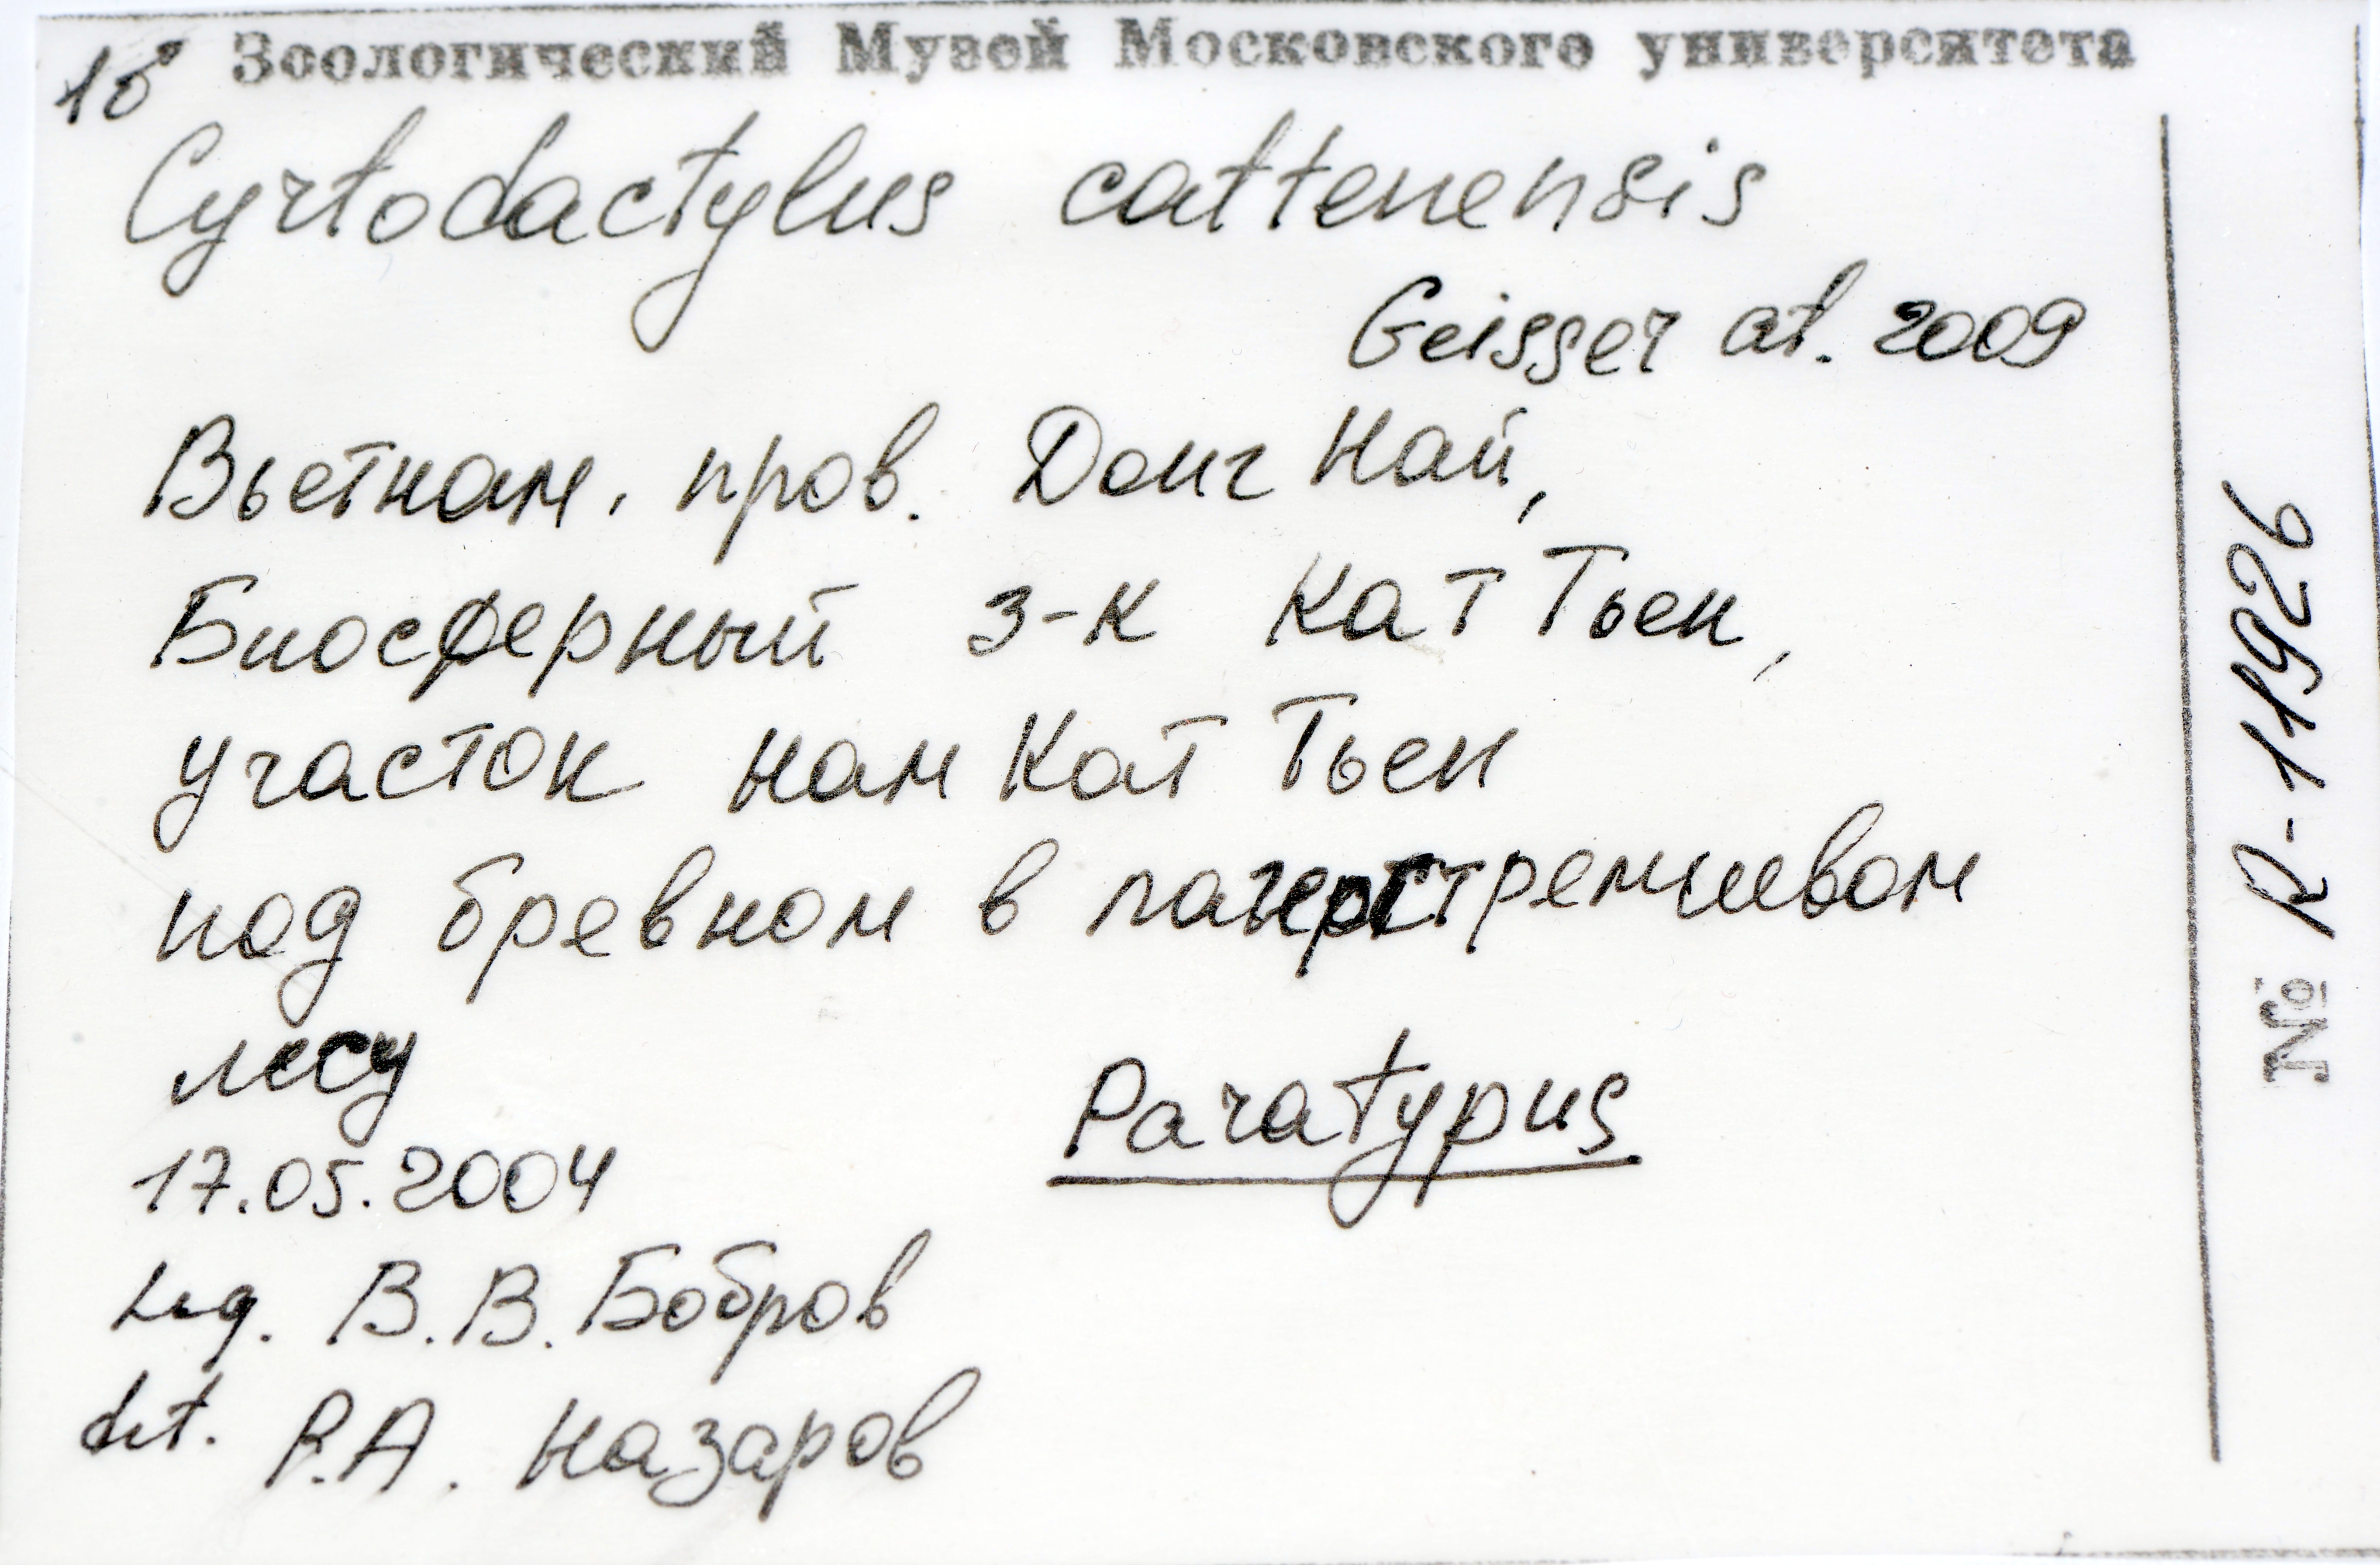 1♂ Зоологический Музей Московского университета
Cyrtodactylus cattenensis
Geisser at. 2009
Вьетнам, пров. Донг Най,
Биосферный з-к Кат Тьен,
участок нам Кат Тьен
под бревном в лагерстремиевом
лесу
Paratypus
17.05.2004
Leg. В.В. Бобров
det. Р.А. Назаров
№ R-11926